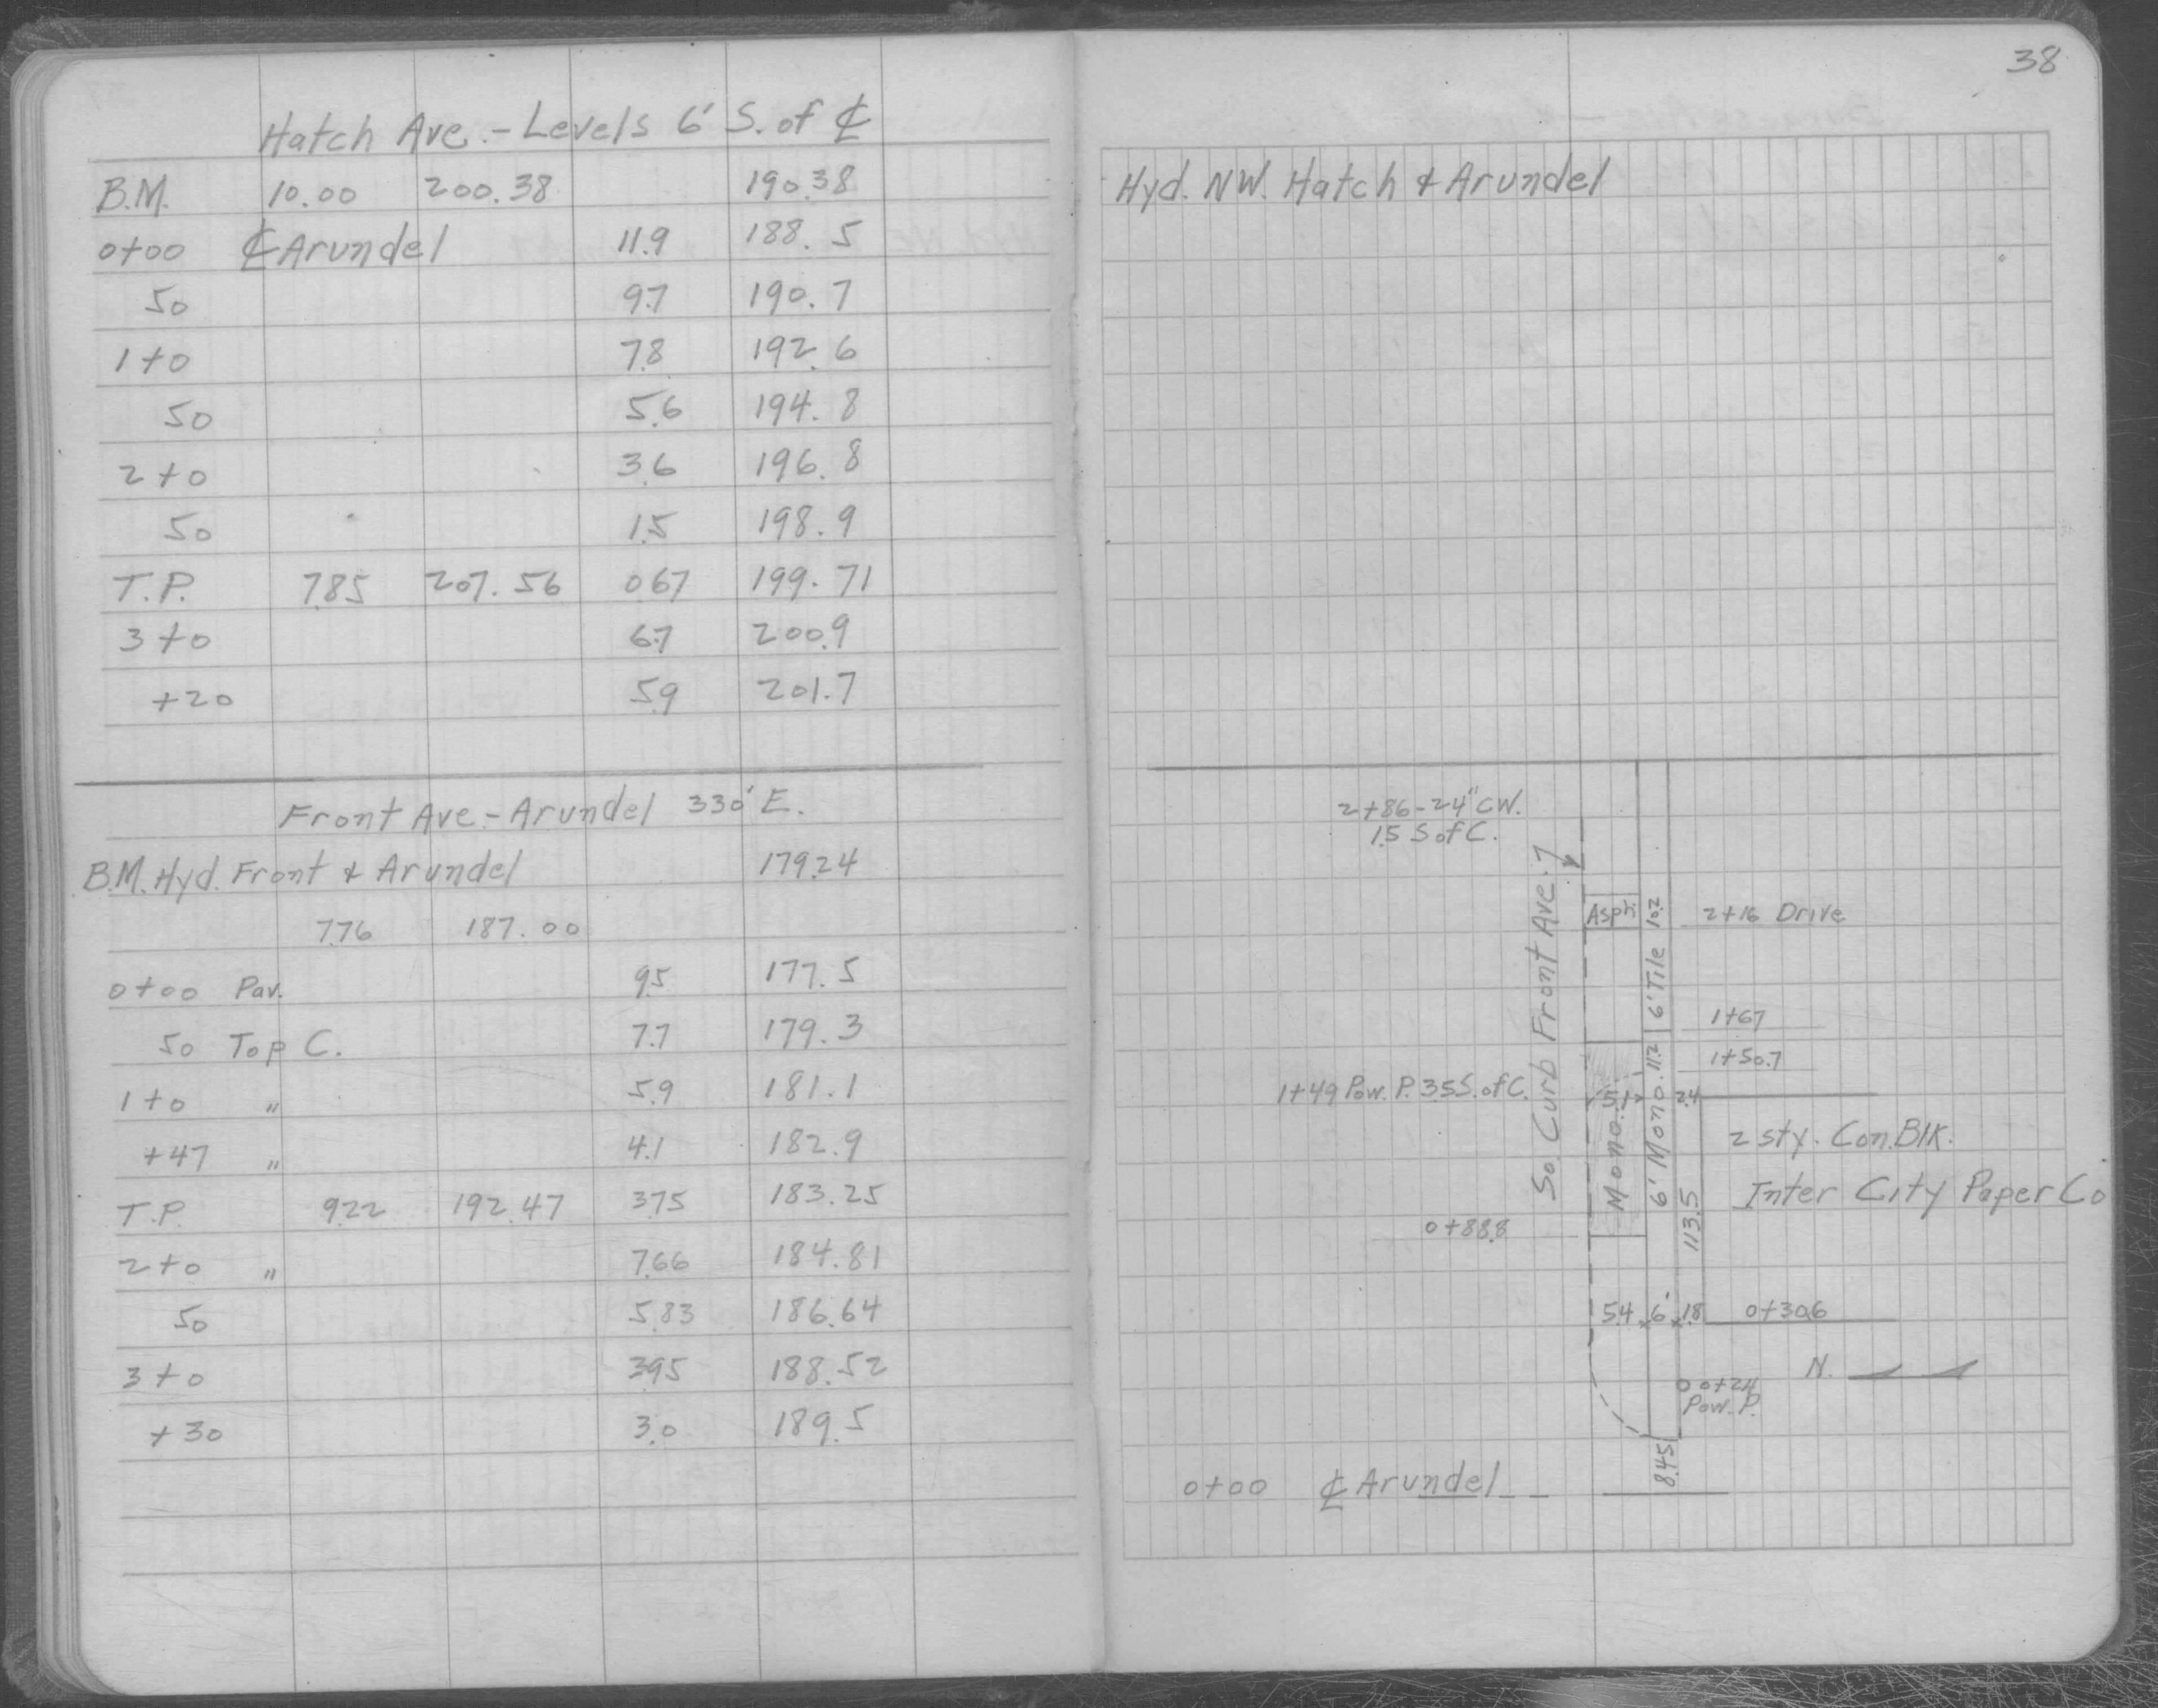 38
Hatch Ave. - Levels 6' S. of ℄
B.M. 10.00 200.38 190.38
0+00 ℄ Arundel 11.9 188.5
50 9.7 190.7
1+0 7.8 192.6
50 5.6 194.8
2+0 3.6 196.8
50 1.5 198.9
T.P. 7.85 207.56 0.67 199.71
3+0 6.7 200.9
+20 5.9 201.7
Front Ave - Arundel 330' E.
B.M. Hyd. Front & Arundel 179.24
7.76 187.00
0+00 Pav. 9.5 177.5
50 Top C. 7.7 179.3
1+0 " 5.9 181.1
+47 " 4.1 182.9
T.P. 9.22 192.47 3.75 183.25
2+0 " 7.66 184.81
50 5.83 186.64
3+0 3.95 188.52
+30 3.0 189.5
Hyd. NW. Hatch & Arundel
2+86 - 24" CW.
1.5 S of C.
So. Curb Front Ave.
Asph.
10.2
2+16 Drive
6' Tile
1+67
11.2
1+50.7
1+49 Pow. P. 3.5 S. of C.
5.1
2.4
Mono.
6' Mono.
2 sty. Con. Blk.
Inter City Paper Co
113.5
0+88.8
5.4 6' 1.8 0+30.6
N.
0+24
Pow. P.
8.45
0+00 ℄ Arundel